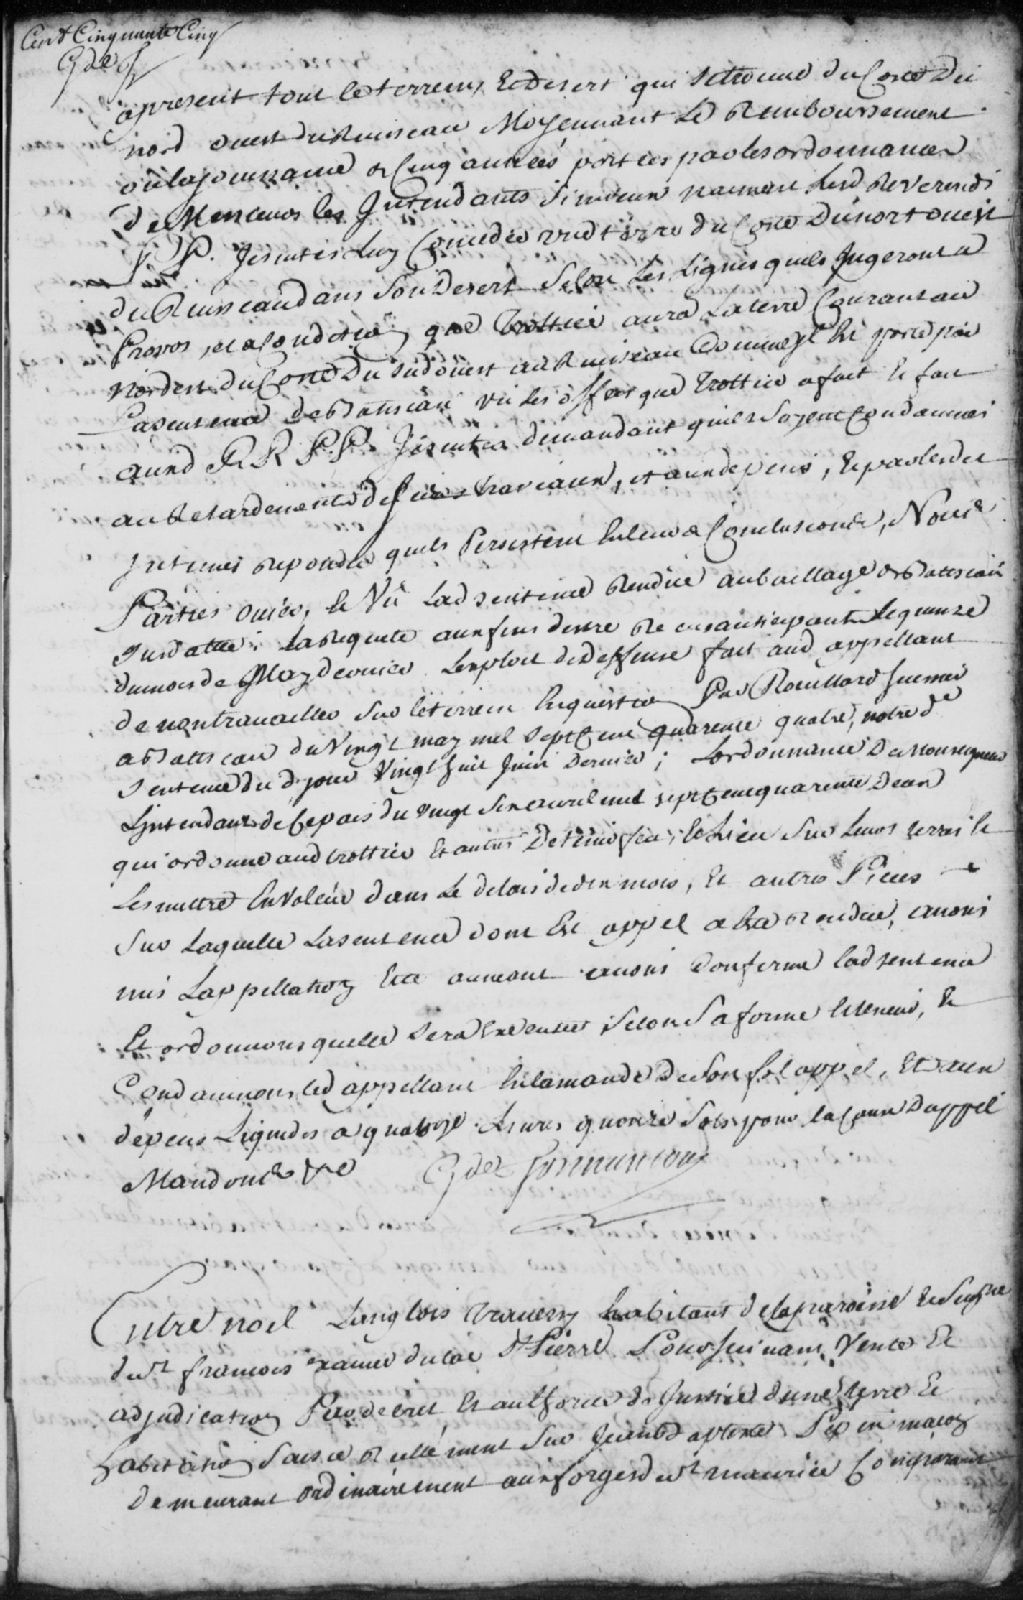 Cent Cinquante Cinq
G de T
apresent tout le terrein, Et Desert qui se trouve du Costé Du
nord ouest du Ruisseau Moyennant Le Remboursement
de Messieurs les Intendants Si mieux naiment Lesd Reverends
P.P. Jesuites Luy Conceder une terre du Costé Du nort ouest
du Ruisseau dans Son Desert Selon Les Lignes quils Jugeront a
Propos, et a Condition que Trottier aura La terre Courant au
Nordest du Costé Du sudouest au Ruisseau Comme Il Est porté par
La Sentence de Batiscan vû les offres que Trottier a fait Et fait
auxd R.R. P.P. Jesuites demandant quils Soyent Condamnés
au Retardement de ses travaux, et aux depens, Et par lesdits
Intimés repondu quils Persistent En leurs Conclusions, Nous
Parties ouies, Et Vû Lad sentence Rendue au baillage de Batiscan
Susdattée; La Requete aux fins destre Reçu anticipant Le quinze
du mois de May dernier Lexploit de deffense fait aud appellant
de non travailler Sur le terrein En question Par Rouillard huissier
a Batiscan du Vingt may mil Sept Cent quarente quatre, notre de
Sentence du d jour Vingt huit Juin Dernier; Lordonnance De Monseigneur
Lintendant de Ce pais du Vingt Six avril mil sept Cent quarente Deux
qui ordonne aud trottier Et autres De tenir feu Et Lieu Sur Leurs terres Et
Les mettre En Valeur dans Le delais de dix mois, Et autres Pieces
Sur Laquelle La sentence dont Est appel a Eté Rendue, avons
mis Lappellation Et Ce au neant avons Confirmé lad sentence
Et ordonnons quelle Sera Executée Selon Sa forme Et teneur, Et
Condamnons led appellant En lamande De Son fol appel, Et aux
dépens Liquidés a quatorze Livres quinze Sols pour la Cause Dappel
Mandons &c G de Tonnancour
Entre noel Langlois traversy habitant de la paroisse Et Seigrie
de St francois Xavier du lac St Pierre Poursuivant Vente Et
adjudication Par decret Et authorité de Justice dune terre Et
habitation Saisie réellement Sur Jean Baptiste Pepin maçon
Demeurant ordinairement aux forges de St maurice